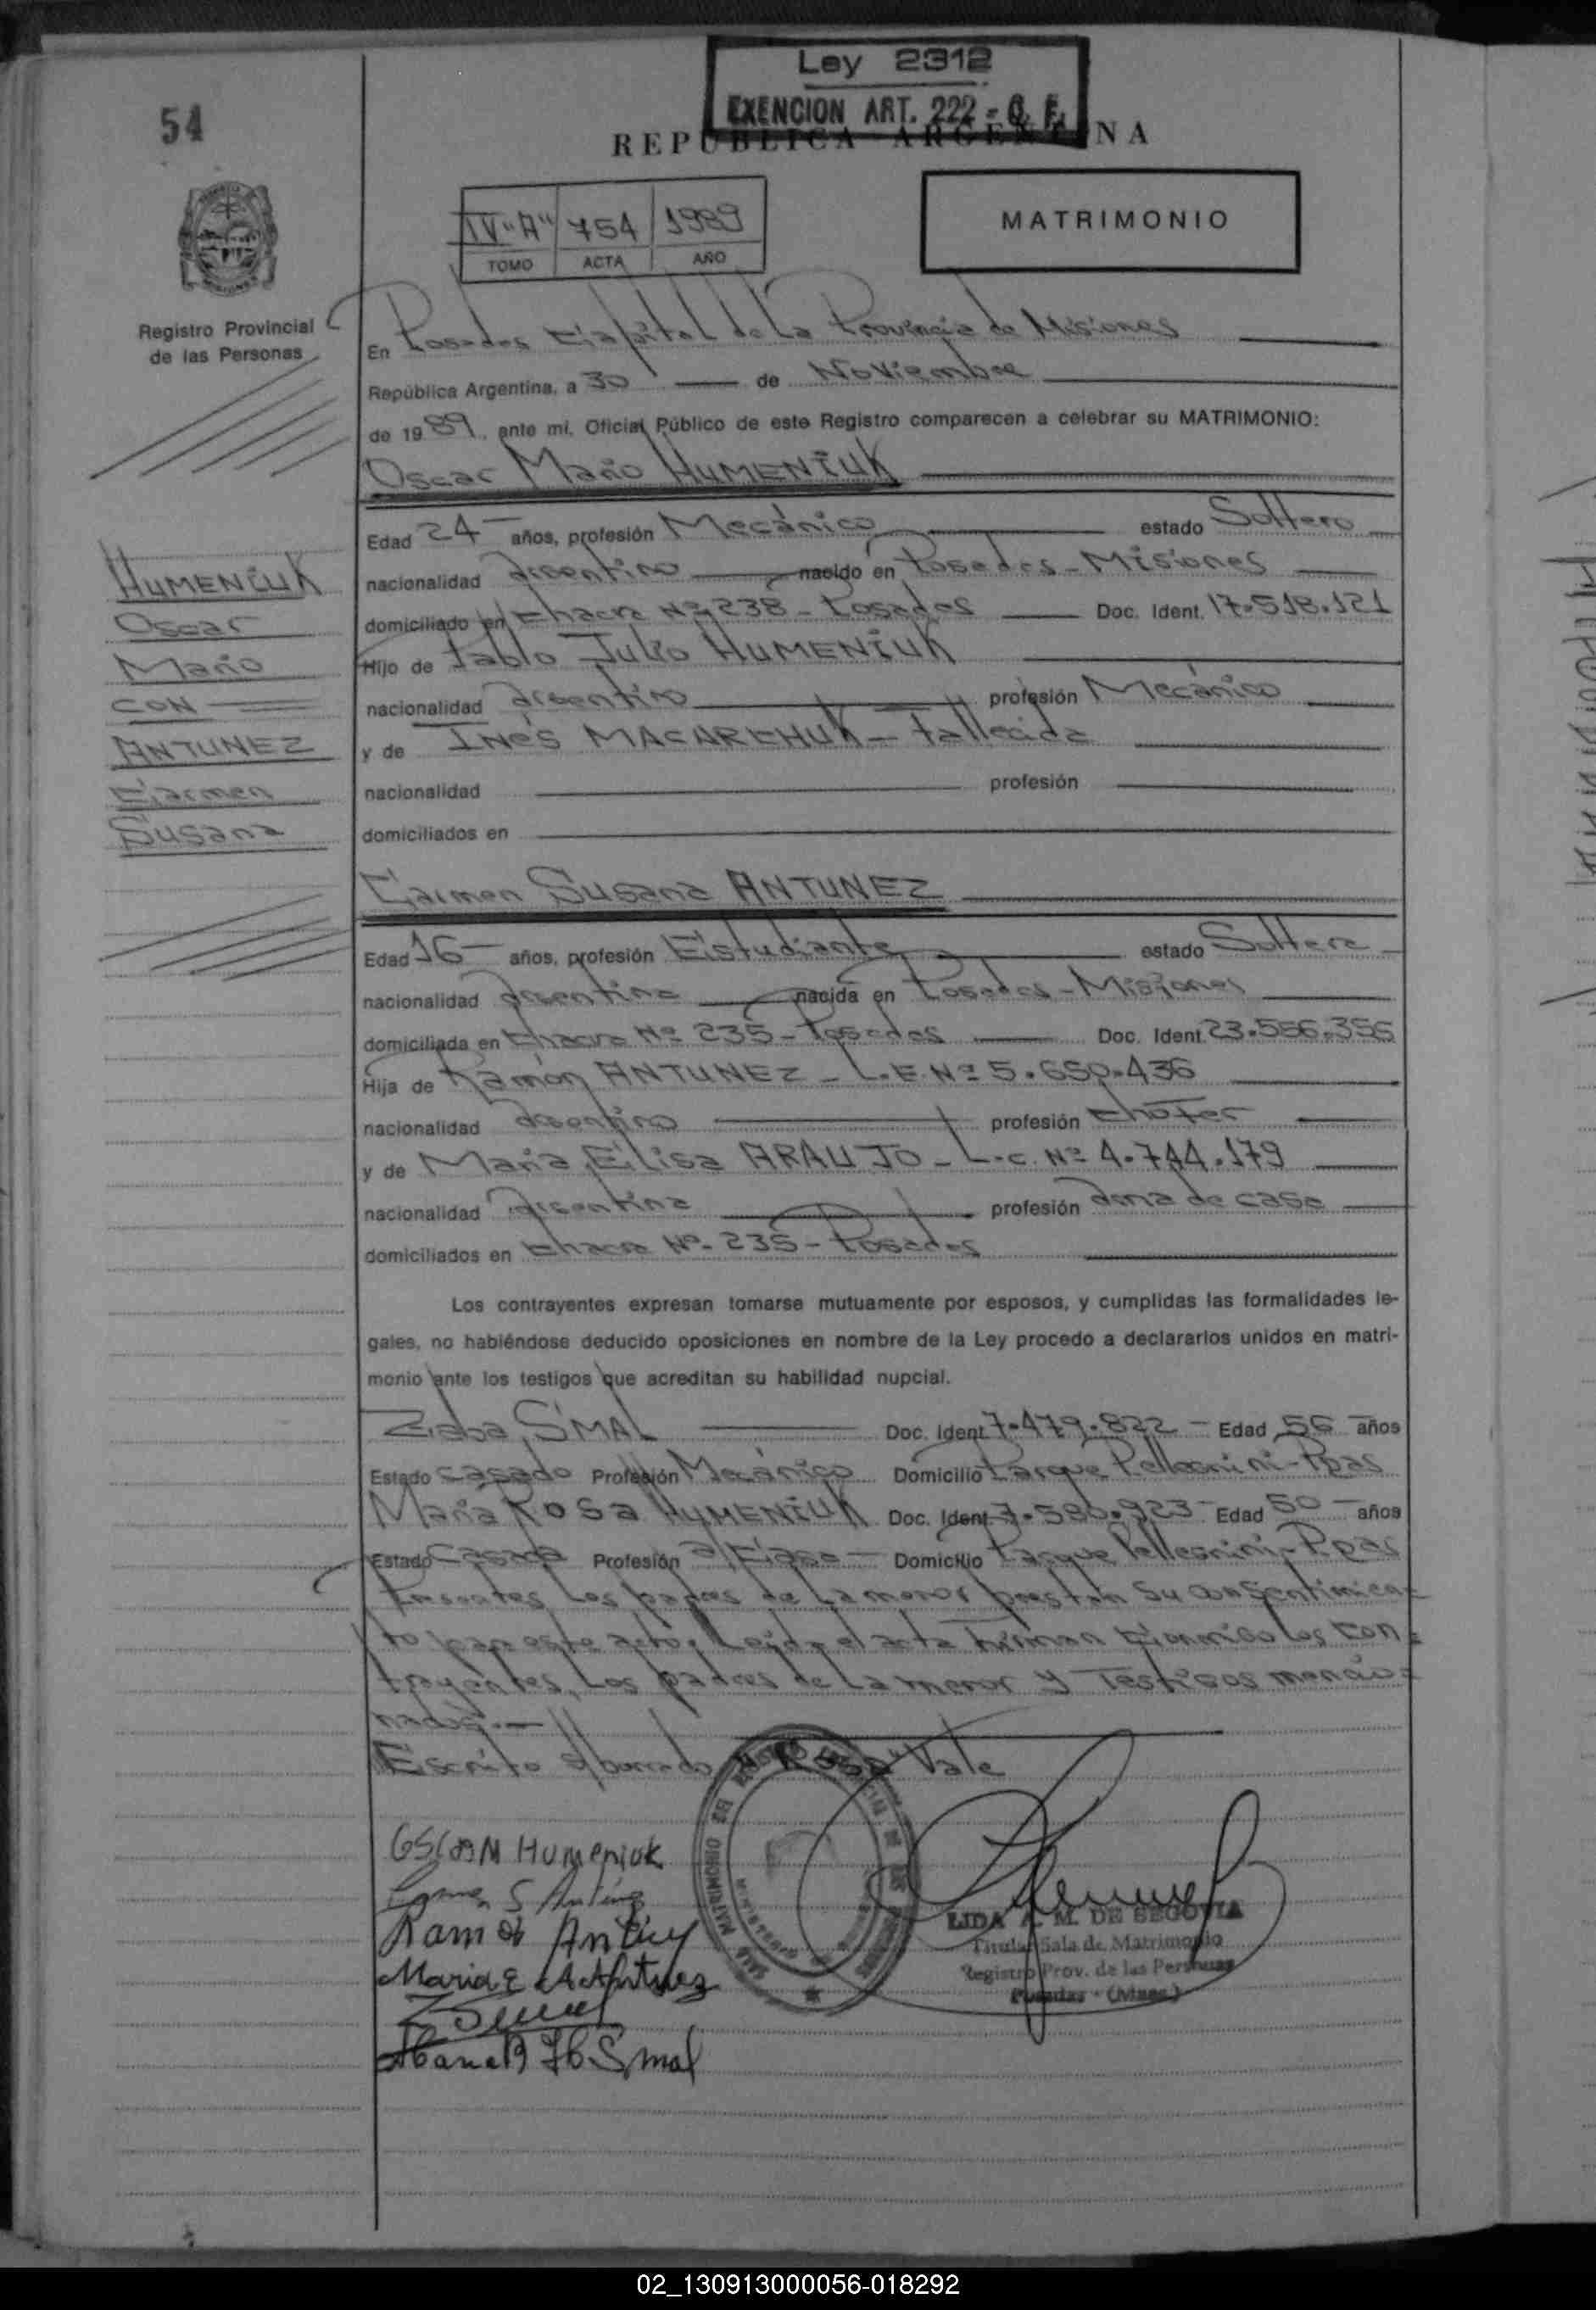 Ley 2312
EXENCION ART. 222 - C. F.
REPUBLICA ARGENTINA
54
IV "A" 754 1989
TOMO ACTA AÑO
MATRIMONIO
Registro Provincial
de las Personas
En Posadas Capital de la Provincia de Misiones
República Argentina, a 30 de Noviembre
de 1989, ante mí, Oficial Público de este Registro comparecen a celebrar su MATRIMONIO:
Oscar Mario HUMENIUK
Edad 24 años, profesión Mecánico estado Soltero
nacionalidad Argentino nacido en Posadas - Misiones
domiciliado en Chacra Nº 238 - Posadas Doc. Ident. 17.518.121
Hijo de Pablo Julio HUMENIUK
nacionalidad Argentino profesión Mecánico
y de Inés MACARCHUK - Fallecida
nacionalidad profesión
domiciliados en
HUMENIUK
Oscar
Mario
CON
ANTUNEZ
Carmen
Susana
Carmen Susana ANTUNEZ
Edad 16 años, profesión Estudiante estado Soltera
nacionalidad Argentina nacida en Posadas - Misiones
domiciliada en Chacra Nº 235 - Posadas Doc. Ident. 23.556.356
Hija de Ramón ANTUNEZ - L.E. Nº 5.650.436
nacionalidad Argentino profesión Chofer
y de Maria Elisa ARAUJO - L.C. Nº 4.744.179
nacionalidad Argentina profesión ama de casa
domiciliados en Chacra Nº 235 - Posadas
Los contrayentes expresan tomarse mutuamente por esposos, y cumplidas las formalidades le-
gales, no habiéndose deducido oposiciones en nombre de la Ley procedo a declararlos unidos en matri-
monio ante los testigos que acreditan su habilidad nupcial.
SMAL Doc. Ident. 7.479.822 - Edad 56 años
Estado casado Profesión Mecánico Domicilio Parque Pellegrini - Ppas
Maria Rosa HUMENIUK Doc. Ident. 7.580.923 - Edad 50 años
Estado Casada Profesión a/Casa - Domicilio Parque Pellegrini - Ppas
Presentes los padres de la menor prestan su consentimien-
to para este acto. Leída el acta firman conmigo los con-
trayentes, los padres de la menor y testigos mencio-
nados.-
Escrito s/borrado "Rosa" Vale
OSCAR M Humeniuk
Carmen S Antúnez
Ramon Antunez
Maria E A Antunez
Z Smal
Maria R H Smal
LIDA A. M. DE SEGOVIA
Titular Sala de Matrimonio
Registro Prov. de las Personas
Posadas - (Mnes.)
02_130913000056-018292